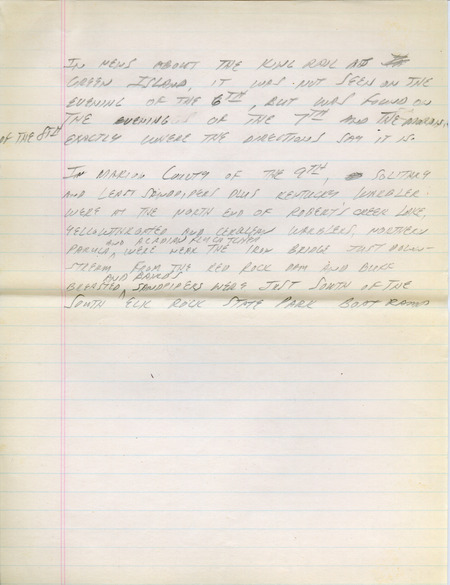 IN NEWS ABOUT THE KING RAIL AT
GREEN ISLAND, IT WAS NOT SEEN ON THE
EVENING OF THE 6TH, BUT WAS FOUND ON
THE EVENING OF THE 7TH AND THE MORNING
OF THE 8TH EXACTLY WHERE THE DIRECTIONS SAY IT IS.
IN MARION COUNTY OF THE 9TH, SOLITARY
AND LEAST SANDPIPERS PLUS KENTUCKY WARBLER
WERE AT THE NORTH END OF ROBERT'S CREEK LAKE,
YELLOWTHROATED AND CERULEAN WARBLERS, NORTHERN
AND ACADIAN FLYCATCHER
PARULA WERE NEAR THE IRON BRIDGE JUST DOWN-
STREAM FROM THE RED ROCK DAM AND BUFF
AND BAIRDS
BREASTED SANDPIPERS WERE JUST SOUTH OF THE
SOUTH ELK ROCK STATE PARK BOAT RAMP